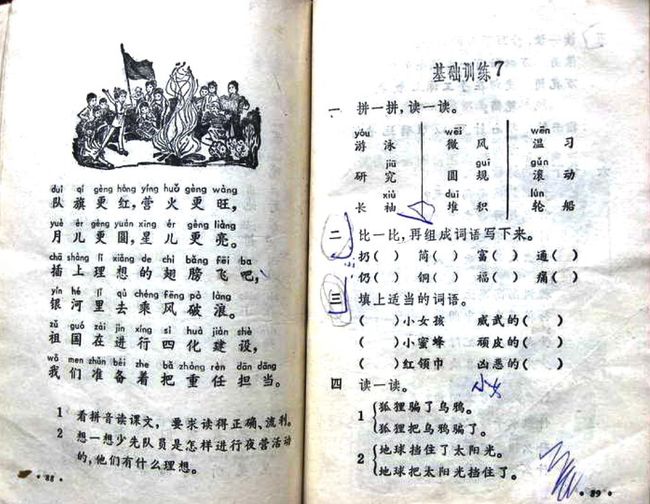 duì qí gèng hóng yíng huǒ gèng wàng
队旗更红,营火更旺,
yuè ér gèng yuán xīng ér gèng liàng
月儿更圆,星儿更亮。
chā shàng lǐ xiǎng de chì bǎng fēi ba
插上理想的翅膀飞吧,
yín hé lǐ qù chéng fēng pò làng
银河里去乘风破浪。
zǔ guó zài jìn xíng sì huà jiàn shè
祖国在进行四化建设,
wǒ men zhǔn bèi zhe bǎ zhòng rèn dān dāng
我们准备着把重任担当。
1 看拼音读课文,要求读得正确、流利。
2 想一想少先队员是怎样进行夜营活动
的,他们有什么理想。
·88·
基础训练7
一 拼一拼,读一读。
yóu wēi wēn
游泳 微风 温习
jiū guī gǔn
研究 圆规 滚动
xiù duī lún
长袖 堆积 轮船
二 比一比,再组成词语写下来。
扔( ) 筒( ) 富( ) 通( )
仍( ) 铜( ) 福( ) 痛( )
三 填上适当的词语。
( )小女孩 威武的( )
( )小蜜蜂 顽皮的( )
( )红领巾 凶恶的( )
四 读一读。
1 狐狸骗了乌鸦。
狐狸把乌鸦骗了。
2 地球挡住了太阳光。
地球把太阳光挡住了。
·89·